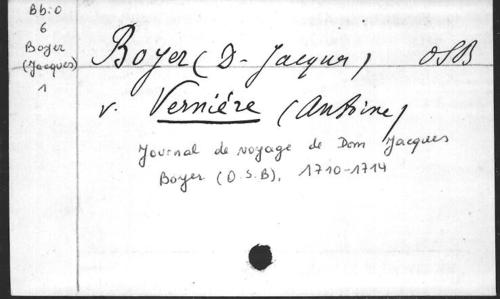 Bb:0
6
Boyer
(Jacques)
1
Boyer (D- Jacques) OSB
v. Vernière (Antoine)
Journal de voyage de Dom Jacques
Boyer (O.S.B), 1710-1714